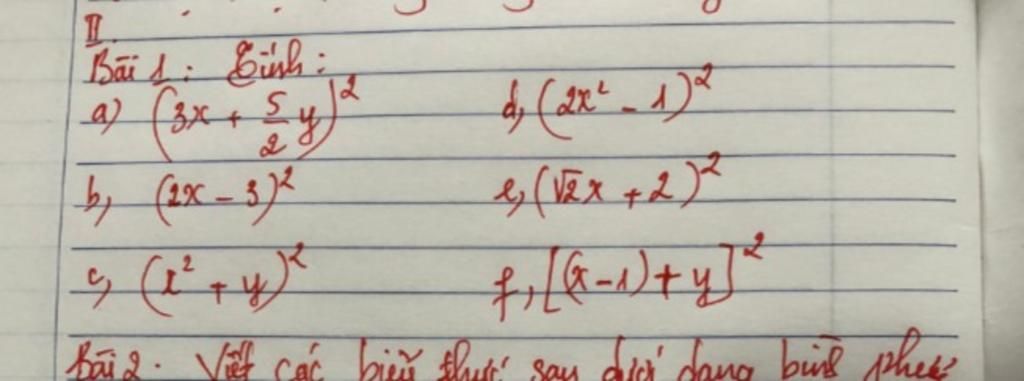 II.
Bài 1: Tính:
a) (3x + 5/2 y)² d, (2x² - 1)²
b, (2x - 3)² e, (√2x + 2)²
c, (x² + y)² f, [(x-1) + y]²
Bài 2. Viết các biểu thức sau dưới dạng bình phươ